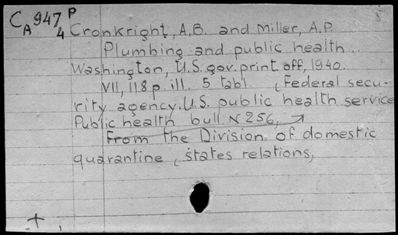 CA 947 P4 Cronkright, A.B. and Miller, A.P.
Plumbing and public health..
Washington, U.S. gov. print. off, 1940.
VII, 118 p. ill. 5 tabl. (Federal secu-
rity agency. U.S. public health service
Public health bull N 256,
From the Division of domestic
quarantine (states relations,